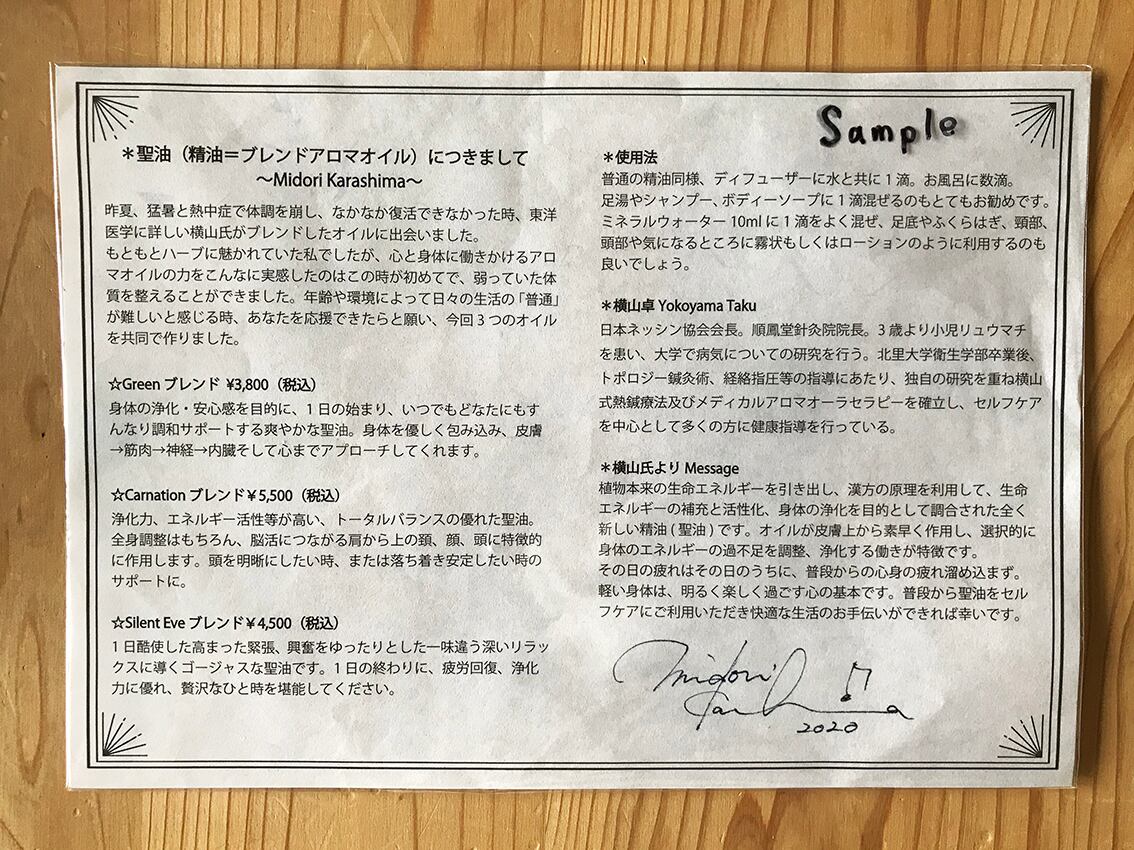 Sample
＊聖油（精油＝ブレンドアロマオイル）につきまして
～Midori Karashima～
昨夏、猛暑と熱中症で体調を崩し、なかなか復活できなかった時、東洋
医学に詳しい横山氏がブレンドしたオイルに出会いました。
もともとハーブに魅かれていた私でしたが、心と身体に働きかけるアロ
マオイルの力をこんなに実感したのはこの時が初めてで、弱っていた体
質を整えることができました。年齢や環境によって日々の生活の「普通」
が難しいと感じる時、あなたを応援できたらと願い、今回３つのオイル
を共同で作りました。
☆Green ブレンド ¥3,800（税込）
身体の浄化・安心感を目的に、１日の始まり、いつでもどなたにもす
んなり調和サポートする爽やかな聖油。身体を優しく包み込み、皮膚
→筋肉→神経→内臓そして心までアプローチしてくれます。
☆Carnation ブレンド￥5,500（税込）
浄化力、エネルギー活性等が高い、トータルバランスの優れた聖油。
全身調整はもちろん、脳活につながる肩から上の頚、顔、頭に特徴的
に作用します。頭を明晰にしたい時、または落ち着き安定したい時の
サポートに。
☆Silent Eve ブレンド￥4,500（税込）
１日酷使した高まった緊張、興奮をゆったりとした一味違う深いリラッ
クスに導くゴージャスな聖油です。１日の終わりに、疲労回復、浄化
力に優れ、贅沢なひと時を堪能してください。
＊使用法
普通の精油同様、ディフューザーに水と共に１滴。お風呂に数滴。
足湯やシャンプー、ボディーソープに１滴混ぜるのもとてもお勧めです。
ミネラルウォーター 10ml に１滴をよく混ぜ、足底やふくらはぎ、頸部、
頭部や気になるところに霧状もしくはローションのように利用するのも
良いでしょう。
＊横山卓 Yokoyama Taku
日本ネッシン協会会長。順鳳堂針灸院院長。３歳より小児リュウマチ
を患い、大学で病気についての研究を行う。北里大学衛生学部卒業後、
トポロジー鍼灸術、経絡指圧等の指導にあたり、独自の研究を重ね横山
式熱鍼療法及びメディカルアロマオーラセラピーを確立し、セルフケア
を中心として多くの方に健康指導を行っている。
＊横山氏より Message
植物本来の生命エネルギーを引き出し、漢方の原理を利用して、生命
エネルギーの補充と活性化、身体の浄化を目的として調合された全く
新しい精油 ( 聖油 ) です。オイルが皮膚上から素早く作用し、選択的に
身体のエネルギーの過不足を調整、浄化する働きが特徴です。
その日の疲れはその日のうちに、普段からの心身の疲れ溜め込まず。
軽い身体は、明るく楽しく過ごす心の基本です。普段から聖油をセル
フケアにご利用いただき快適な生活のお手伝いができれば幸いです。
Midori
Karashima
2020